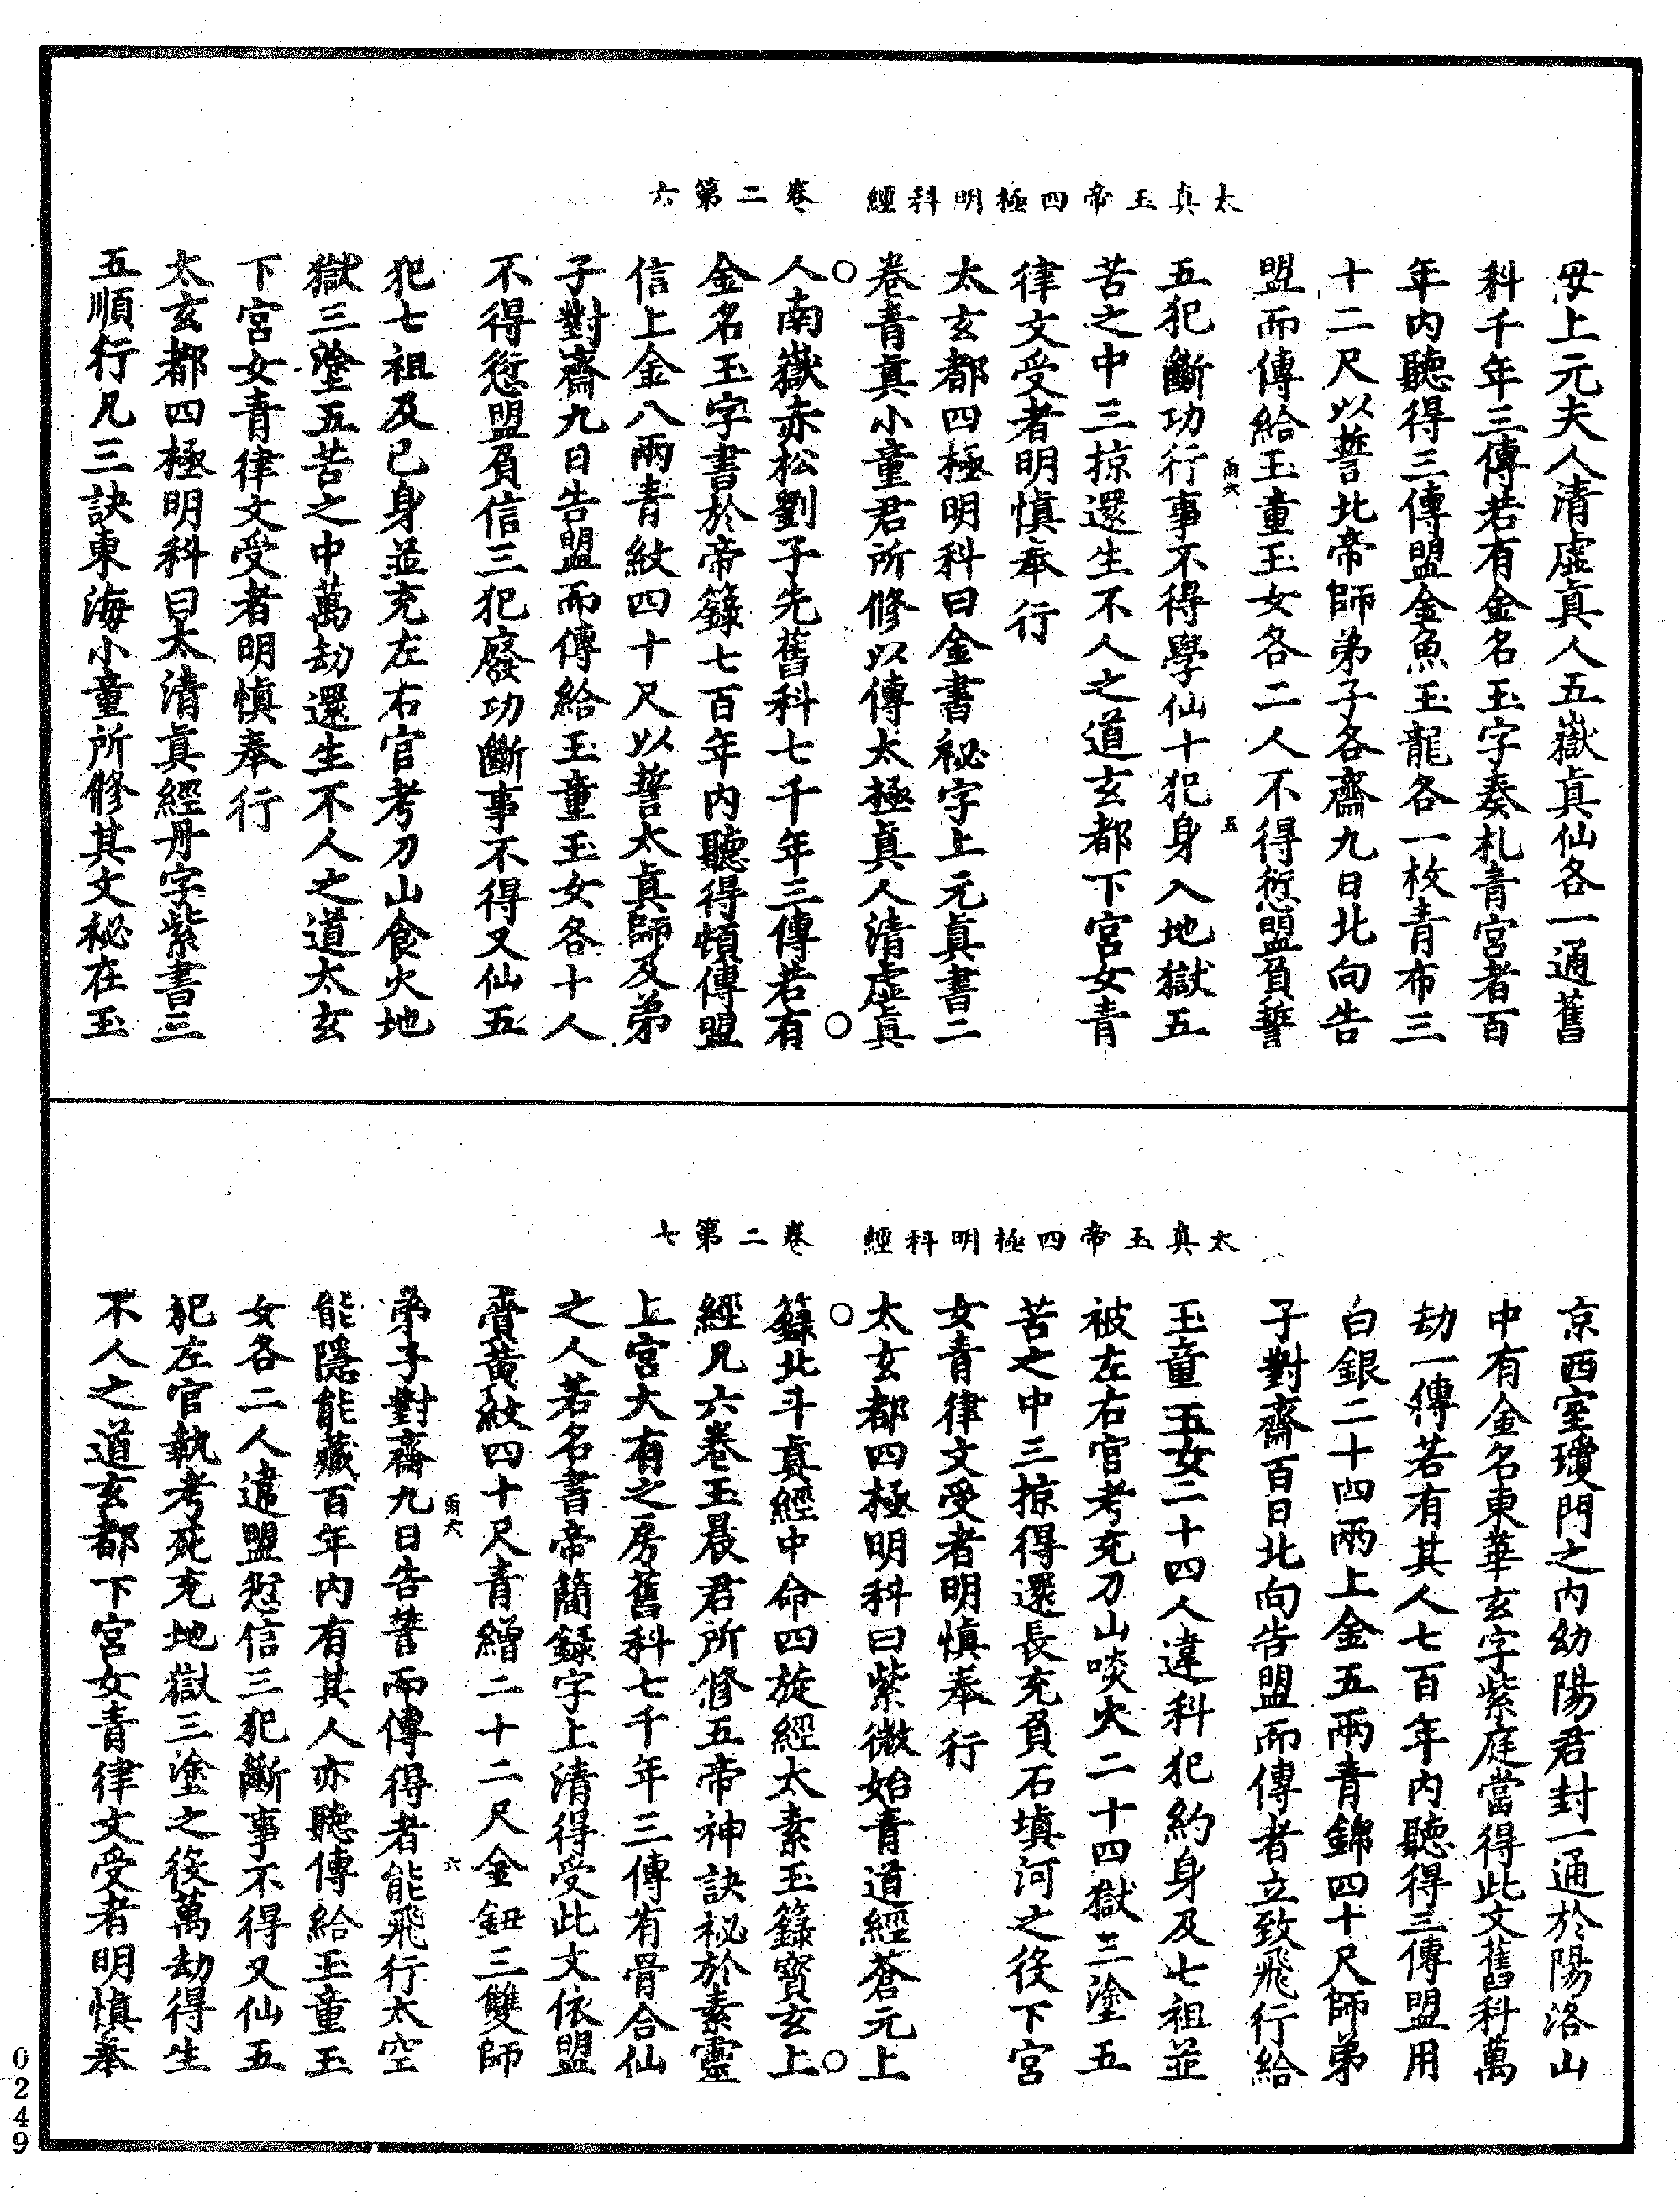 太真玉帝四極明科經　卷二第六
母上元夫人清虛真人五嶽真仙各一通舊
科千年三傳若有金名玉字奏札青宮者百
年內聽得三傳盟金魚玉龍各一枚青布三
十二尺以誓北帝師弟子各齋九日北向告
盟而傳給玉童玉女各二人不得愆盟負誓
五犯斷功行事不得學仙十犯身入地獄五
苦之中三掠還生不人之道玄都下宮女青
律文受者明慎奉行
太玄都四極明科曰金書祕字上元真書二
卷青真小童君所修以傳太極真人清虛真
人南嶽赤松劉子先舊科七千年三傳若有
金名玉字書於帝籙七百年內聽得頓傳盟
信上金八兩青紋四十尺以誓太真師及弟
子對齋九日告盟而傳給玉童玉女各十人
不得愆盟負信三犯廢功斷事不得又仙五
犯七祖及已身並充左右官考刀山食火地
獄三塗五苦之中萬劫還生不人之道太玄
下宮女青律文受者明慎奉行
太玄都四極明科曰太清真經丹字紫書三
五順行凡三訣東海小童所修其文秘在玉
雨六
五
太真玉帝四極明科經　卷二第七
京西室瓊門之內幼陽君封一通於陽洛山
中有金名東華玄字紫庭當得此文舊科萬
劫一傳若有其人七百年內聽得三傳盟用
白銀二十四兩上金五兩青錦四十尺師弟
子對齋百日北向告盟而傳者立致飛行給
玉童玉女二十四人違科犯約身及七祖並
被左右官考充刀山啖火二十四獄三塗五
苦之中三掠得還長充負石填河之役下宮
女青律文受者明慎奉行
太玄都四極明科曰紫微始青道經蒼元上
籙北斗真經中命四旋經太素玉籙寶玄上
經凡六卷玉晨君所修五帝神訣祕於素靈
上宮大有之房舊科七千年三傳有骨合仙
之人若名書帝簡錄字上清得受此文依盟
賷黃紋四十尺青繒二十二尺金鈕三雙師
弟子對齋九日告誓而傳得者能飛行太空
能隱能藏百年內有其人亦聽傳給玉童玉
女各二人違盟愆信三犯斷事不得又仙五
犯左官執考死充地獄三塗之後萬劫得生
不人之道玄都下宮女青律文受者明慎奉
雨六
六
0249